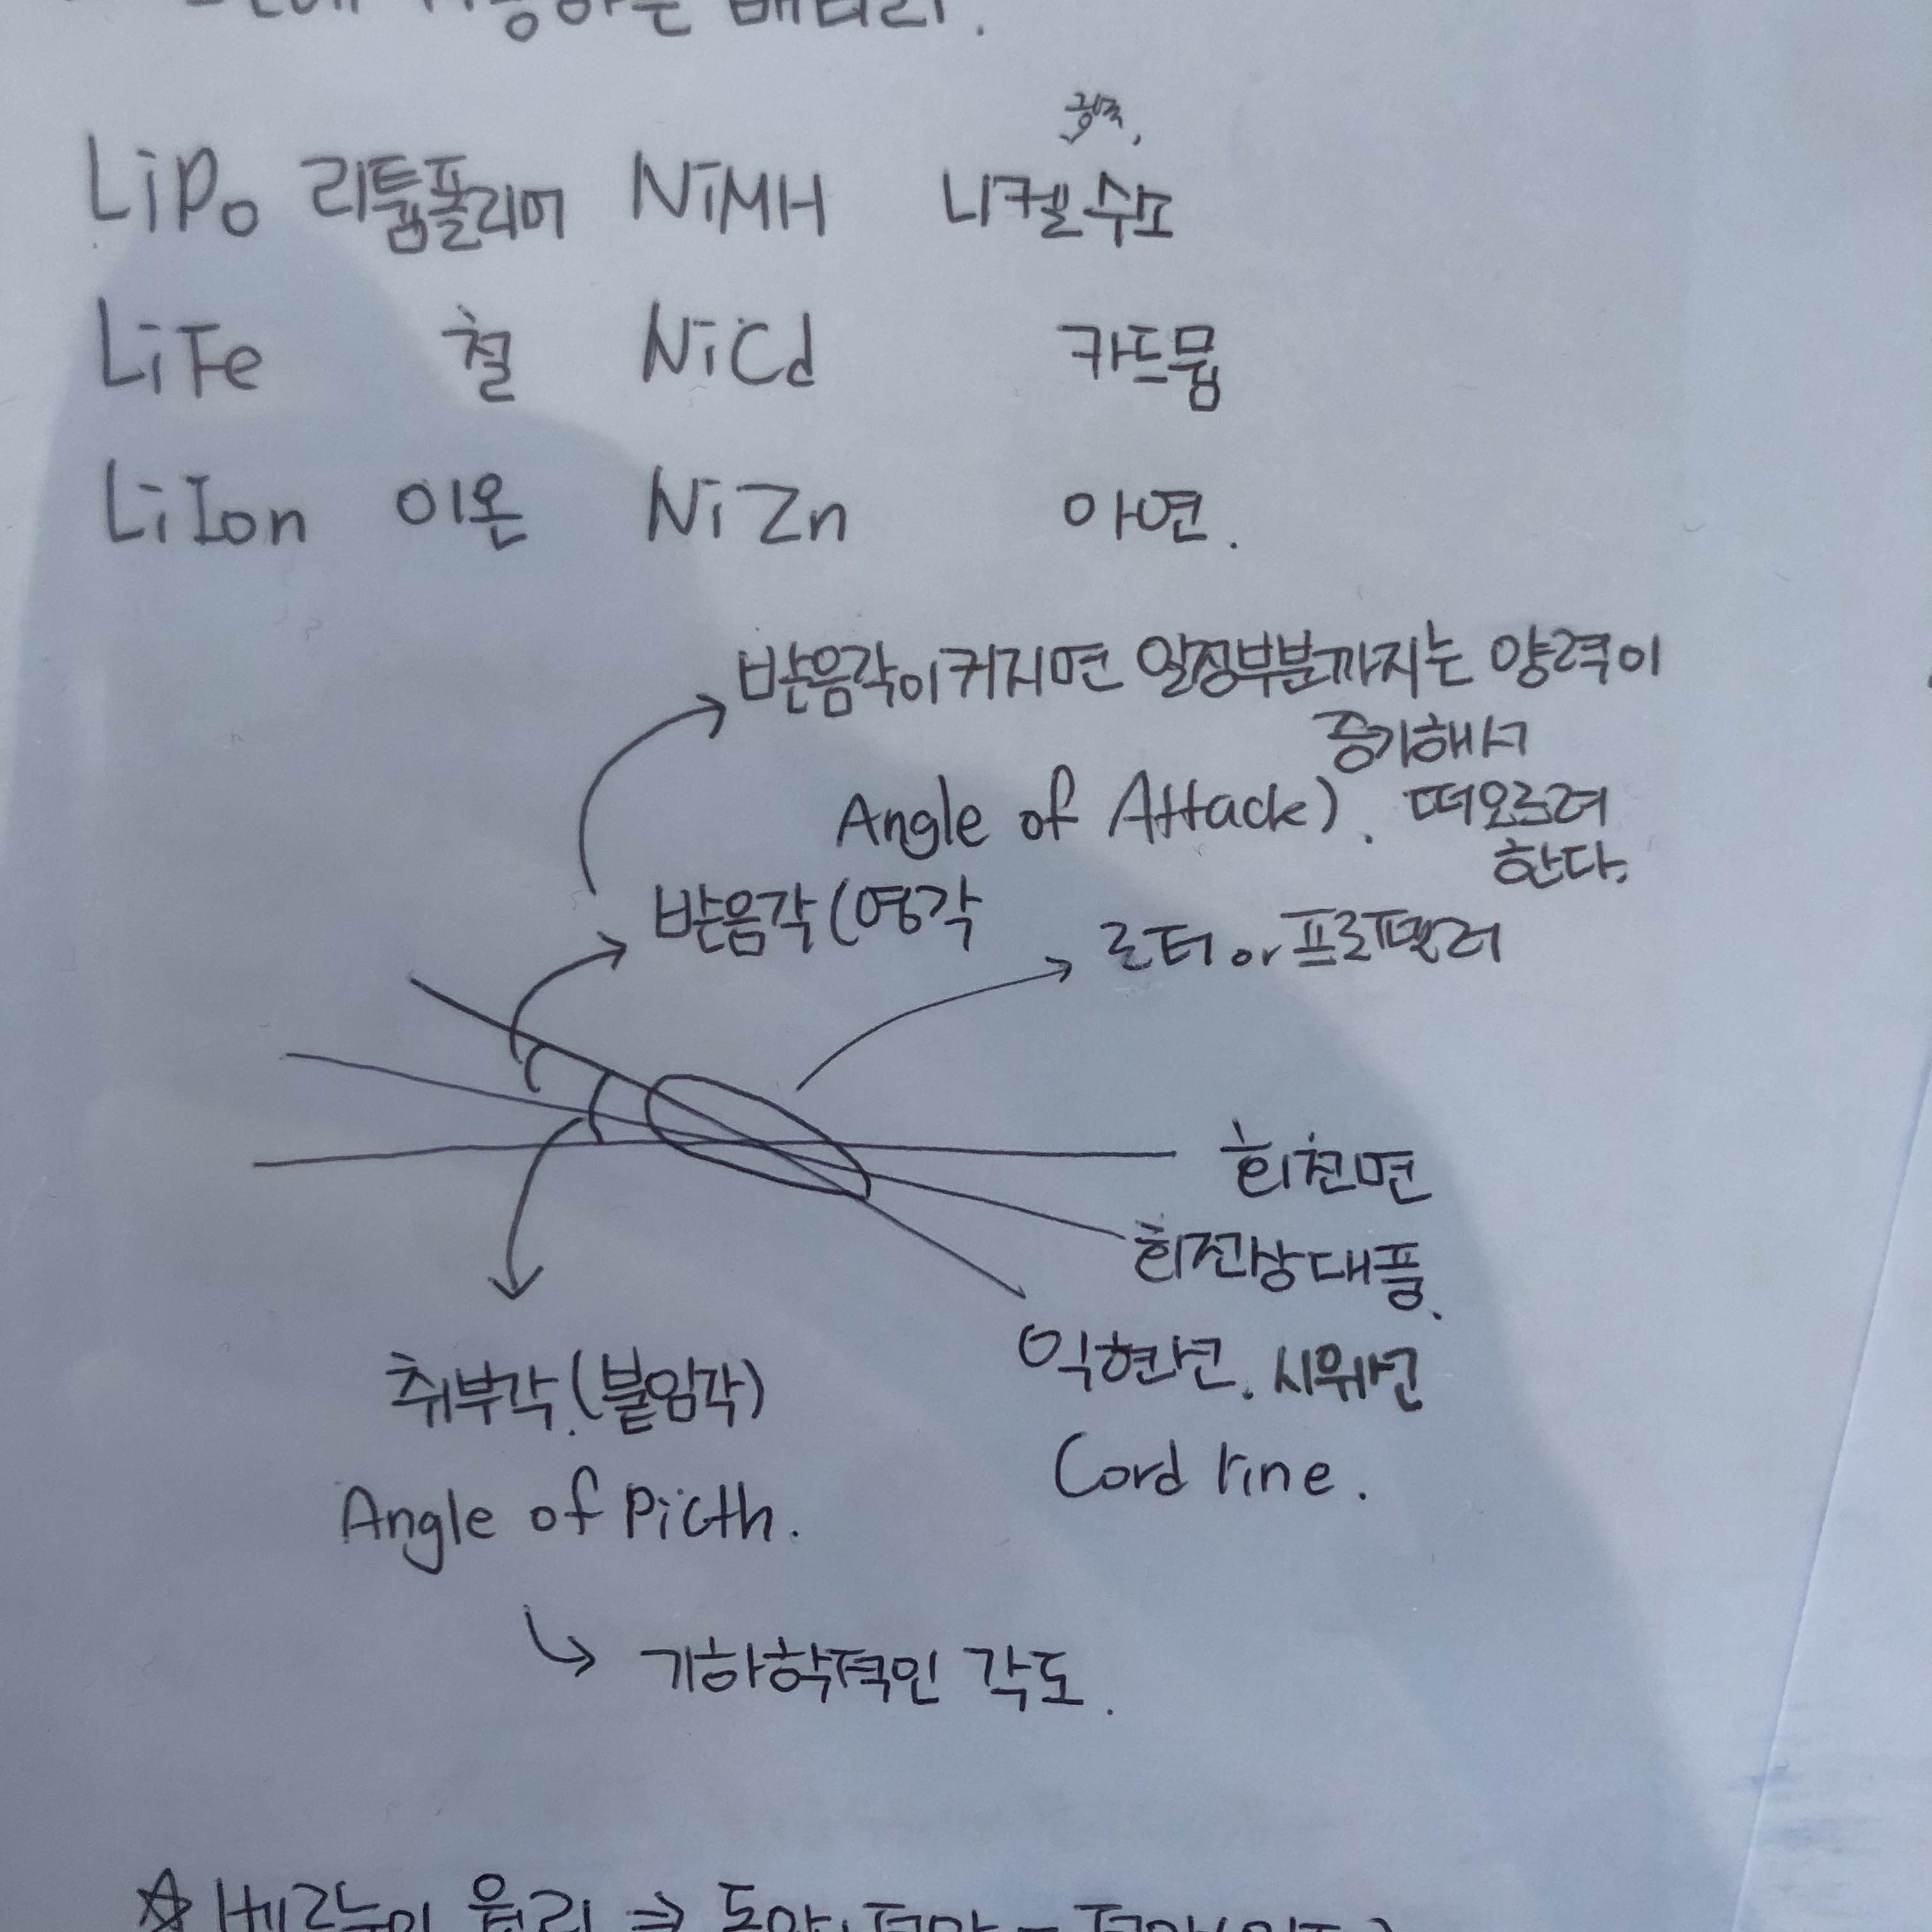 사용하는 배터리.
LiPo 리튬폴리머 NiMH 니켈수소
LiFe 철 NiCd 카드뮴
LiIon 이온 NiZn 아연.
받음각이커지면 일정부분까지는 양력이
증가해서
Angle of Attack). 떠오르려
한다.
받음각(영각
로터 or 프로펠러
회전면
회전상대풍.
취부각.(붙임각)
익현선. 시위선
Cord line.
Angle of Picth.
기하학적인 각도.
☆ 베르누이 원리 ⇒